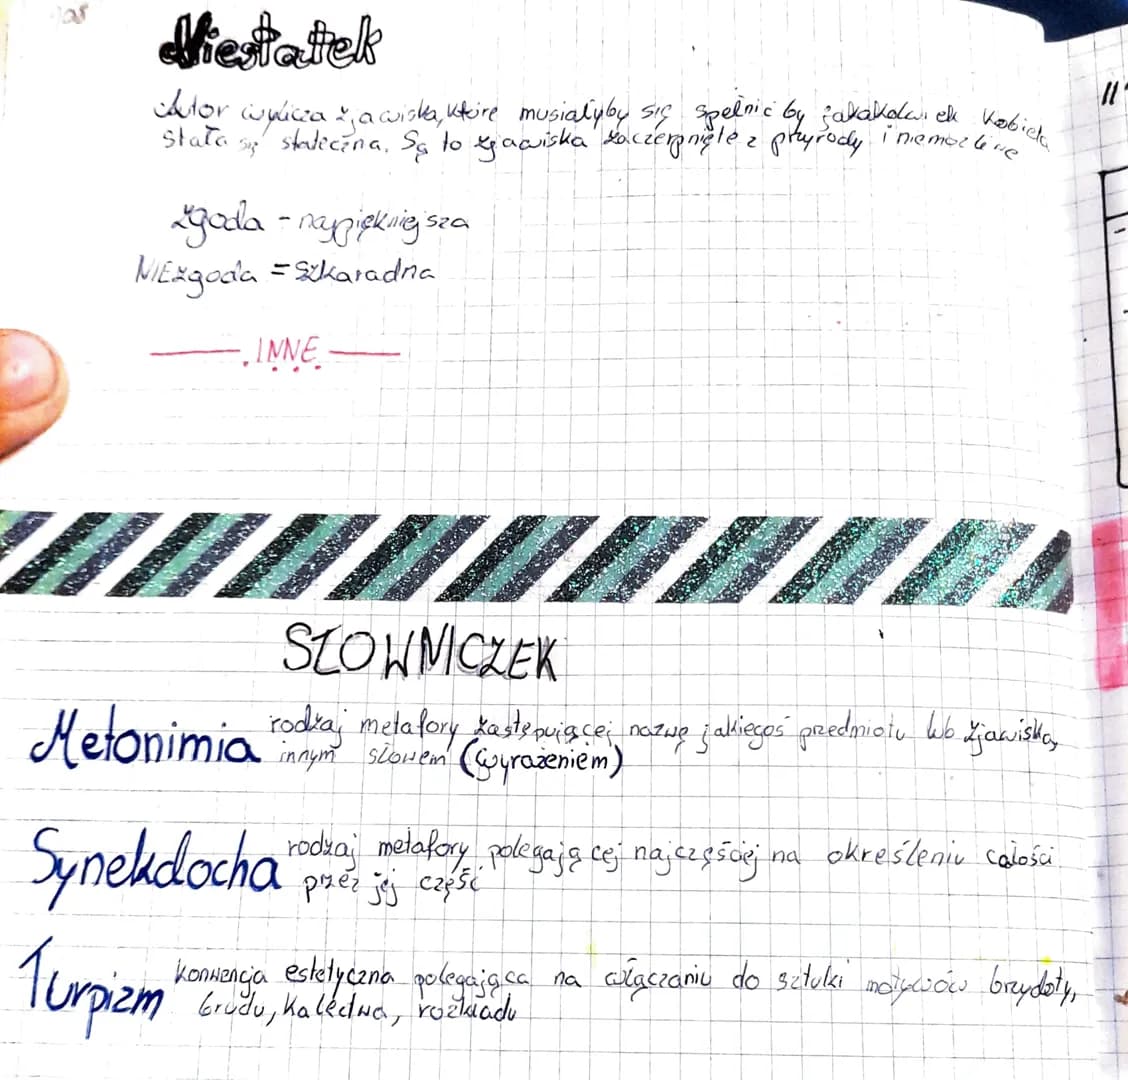 Niestatek
Autor wylicza zjawiska, które musiałyby się spełnić by jakakolwiek kobieta
stała się stateczna. Są to zjawiska zaczerpnięte z przyrody i niemożliwe
zgoda - najpiękniejsza
NIEzgoda = szkaradna
INNE
SŁOWNICZEK
Metonimia rodzaj metafory zastępującej nazwę jakiegoś przedmiotu lub zjawiska,
innym słowem (wyrażeniem)
Synekdocha rodzaj metafory polegającej najczęściej na określeniu całości
przez jej część
Turpizm konwencja estetyczna polegająca na włączaniu do sztuki motywów brzydoty,
brudu, kalectwa, rozkładu